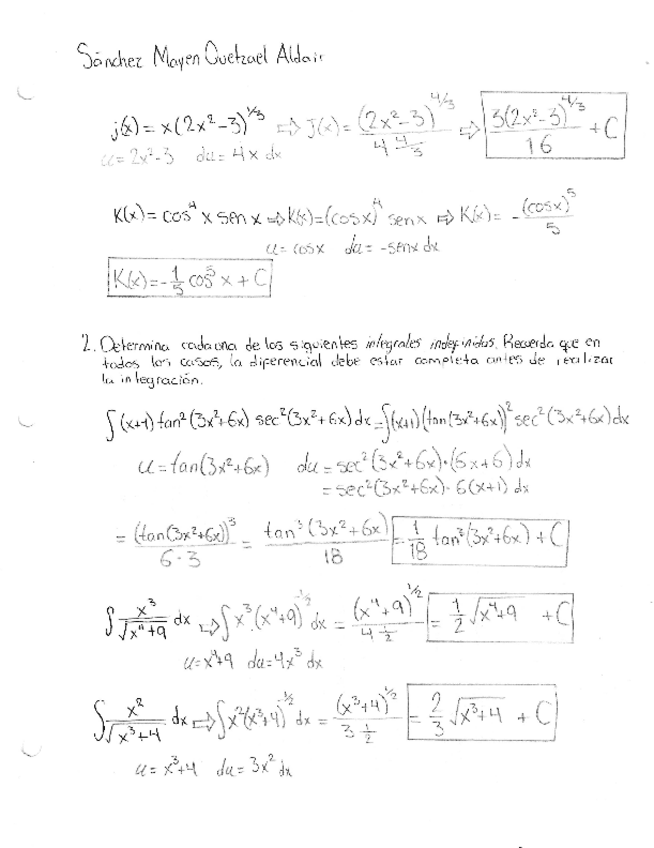 Sánchez Mayen Quetzael Aldair
j(x) = x(2x²-3)^{1/3} ⇒ J(x) = (2x²-3)^{4/3} / 4 4/3 ⇒ 3(2x²-3)^{4/3} / 16 + C
u = 2x²-3 du = 4x dx
K(x) = cos⁴ x sen x ⇒ K(x) = (cos x)⁴ sen x ⇒ K(x) = -(cos x)⁵ / 5
u = cos x du = -sen x dx
K(x) = -1/5 cos⁵ x + C
2. Determina cada una de los siguientes integrales indefinidas. Recuerda que en
todos los casos, la diferencial debe estar completa antes de realizar
la integración.
∫(x+1) tan²(3x²+6x) sec²(3x²+6x) dx = ∫(x+1)(tan(3x²+6x))² sec²(3x²+6x) dx
u = tan(3x²+6x) du = sec²(3x²+6x)·(6x+6) dx
= sec²(3x²+6x)·6(x+1) dx
= (tan(3x²+6x))³ / 6·3 = tan³(3x²+6x) / 18 = 1/18 tan³(3x²+6x) + C
∫ x³/√(x⁴+9) dx ⇒ ∫x³(x⁴+9)^{-1/2} dx = (x⁴+9)^{1/2} / 4 1/2 = 1/2 √(x⁴+9) + C
u = x⁴+9 du = 4x³ dx
∫ x²/√(x³+4) dx ⇒ ∫x²(x³+4)^{-1/2} dx = (x³+4)^{1/2} / 3 1/2 = 2/3 √(x³+4) + C
u = x³+4 du = 3x² dx